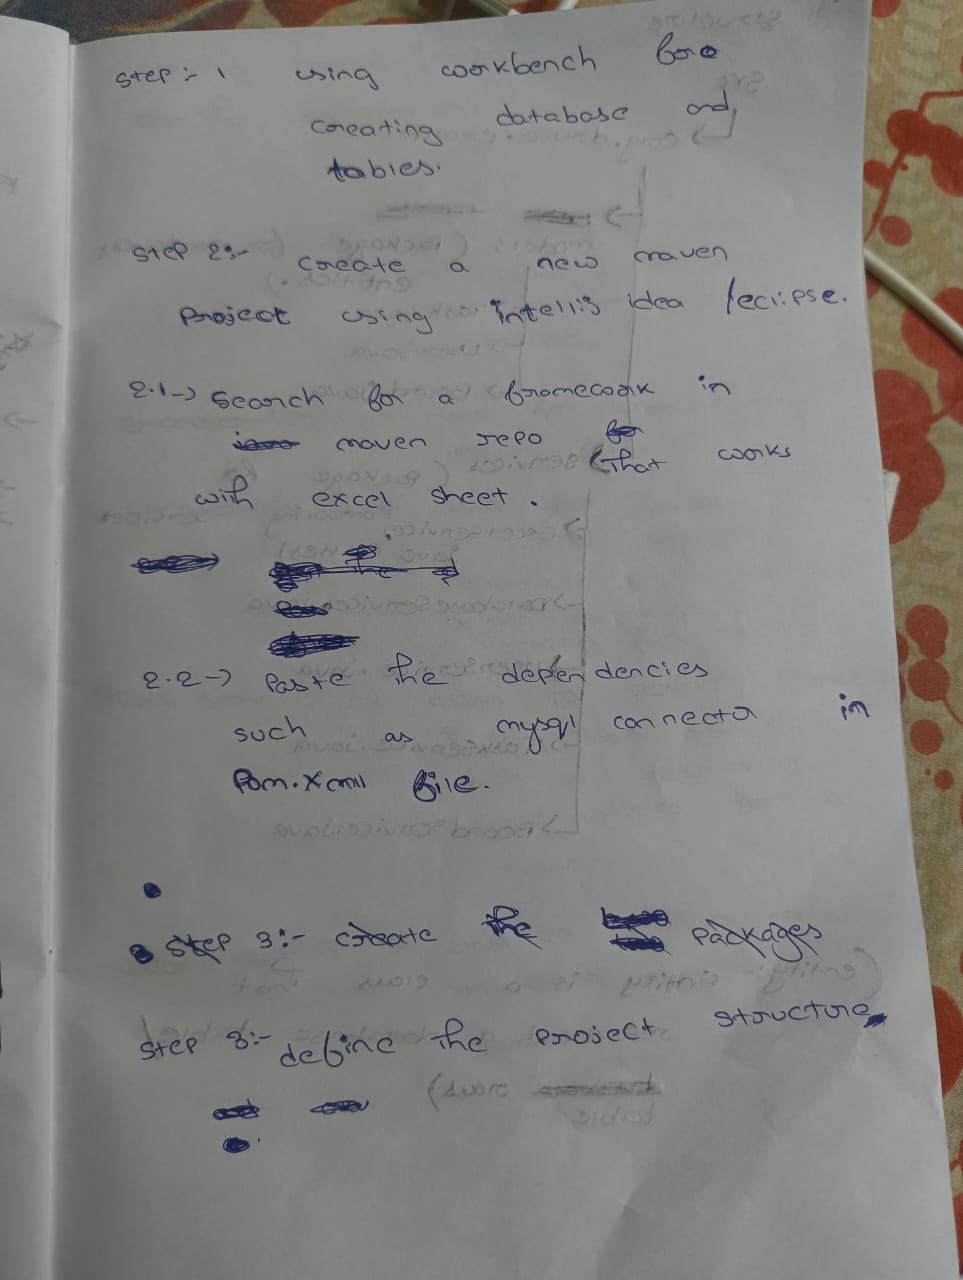 Step :- 1 using workbench for
creating database and
tables.
Step 2:- create a new maven
Project using intellij idea /eclipse.
2.1-> Search for a framework in
maven repo
that works
with excel sheet.
2.2-> Paste the dependencies
such as mysql connector in
Pom.xml file.
Step 3:- create the packages
Step 3:- define the project structure